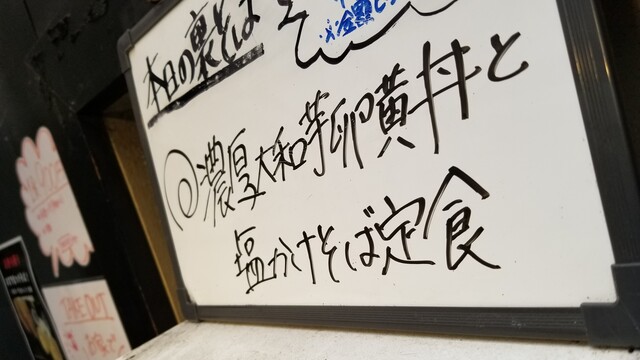 本日の裏そば
◎濃厚大和芋卵黄丼と
塩かけそば定食
TAKE OUT